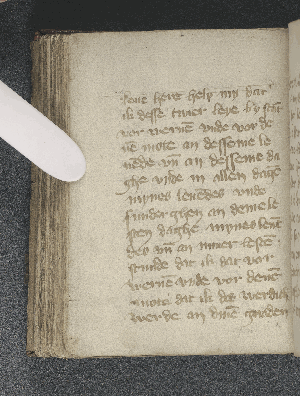 leue here help my dat
ik desse twier leye by stat
vor werue vnde vor de
ne mote an desseme le
uede vn an desseme da
ghe vnde in allen daghe
mynes leuendes vnde
sunderghen an deme le
sten daghe mynes leuen
des an myner lesten
stunde dat ik dat vor
werue vnde vor denen
mote dat ik des werdich
werde an dine gnaden